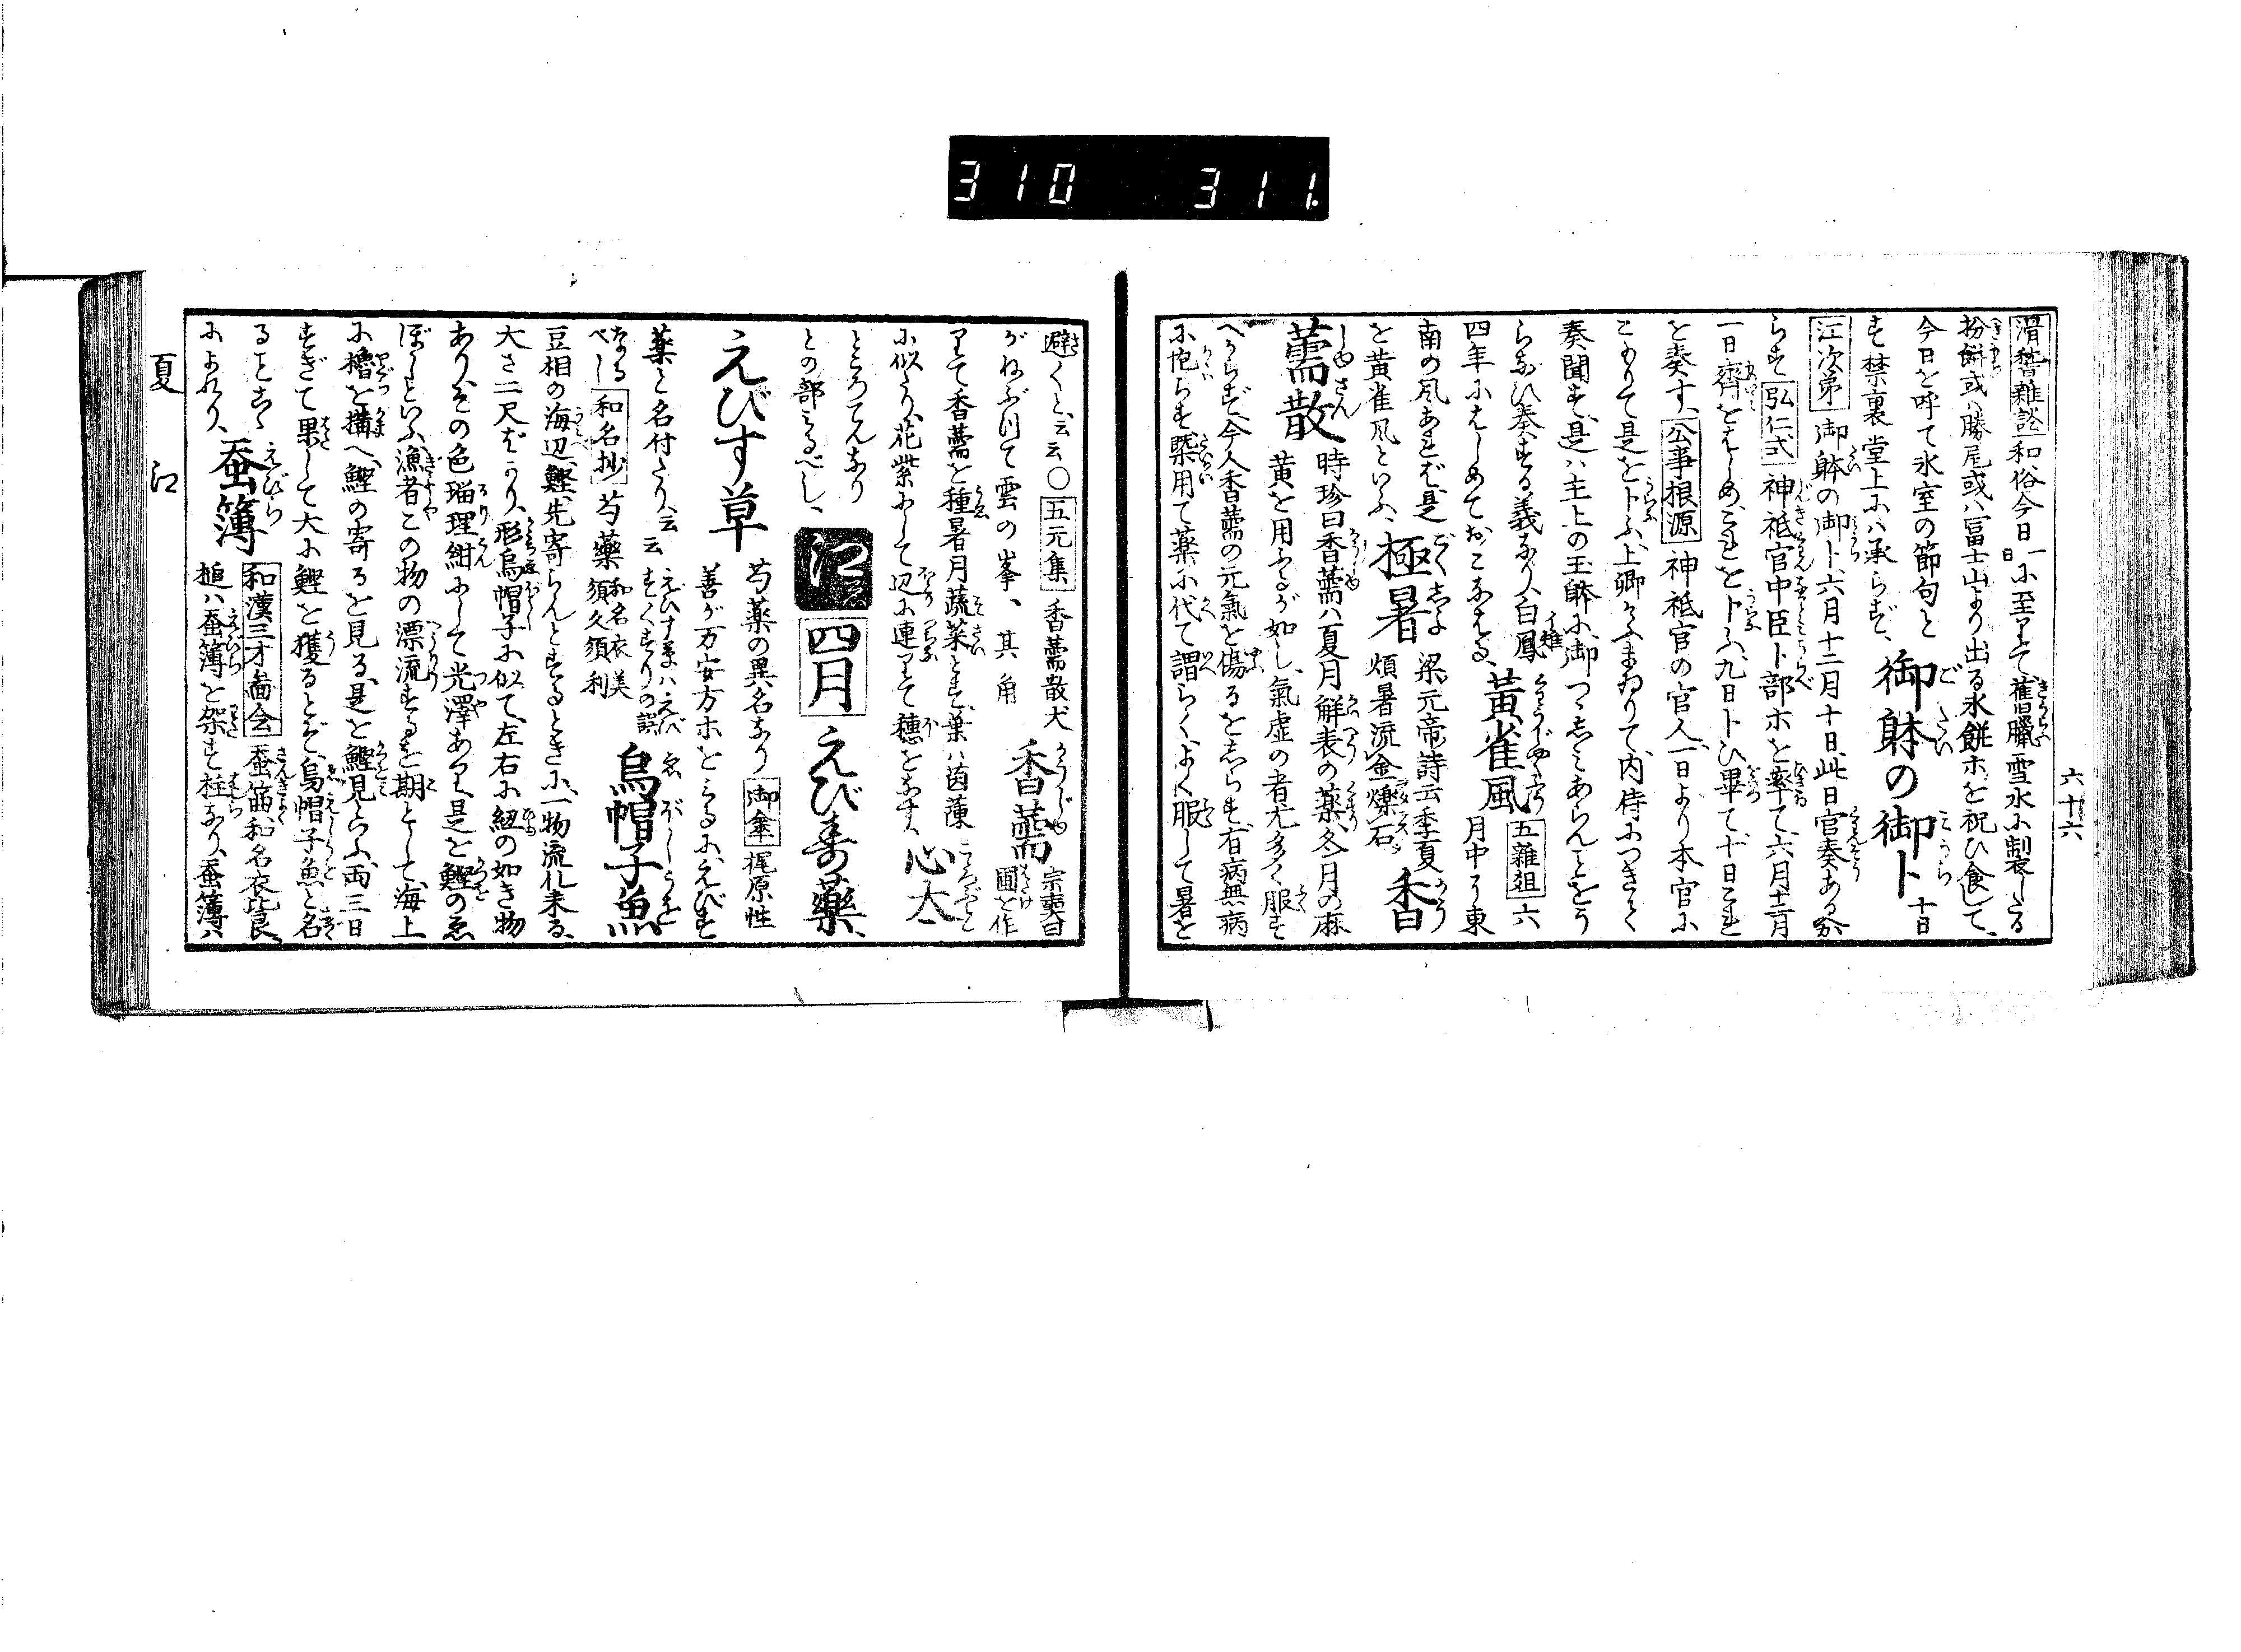 310 311.
六十六
滑稽雑談 和俗今日一日に至りて舊臘雪水に製したる
粉餅或ハ勝尾或ハ冨士山より出る氷餅ホを祝ひ食して、
今日を呼て氷室の節句と
す禁裏堂上にハ承らず、御躰の御卜 十日
江次第 御躰の御卜、六月十二月十日、此日官奏あるか
らず 弘仁式 神祇官中臣卜部ホを率て、六月十二月
一日齊をはじめ、これをト ふ、九日卜ひ畢て、十日これ
を奏す、公事根源 神祇官の官人、一日より本官に
こもりて是を卜ふ、上卿 まゐりて、内侍につきて
奏聞す、是ハ主上の玉躰に、御つゝしみあらんことをう
らなひ奏する義なり、白鳳
四年にはじめておこなはる、黄雀風 五雜俎 六月中 東
南の風あれバ、是
を黄雀風といふ、極暑 梁元帝詩云季夏
煩暑流金爍石 香
薷散 時珍曰香薷ハ夏月解表の薬、冬月の麻
黄を用ふるが如し、氣虚の者尤多く服す
べからず、今人香薷の元氣を傷るをしらず、有病無病
に拘らず、槩用て薬に代て、謂らく、よく服して暑を
避くと、云云 〇 五元集 香薷散犬
がねぶりて雲の峯、其角 香薷 宗奭曰 圃を作
りて香薷を種、暑月蔬菜とす、葉ハ茵蔯
に似たり、花紫にして辺に連りて穂をなす、心太
ところてんなり
との部 みるべし、江 四月 えび寿薬、
えびす草 芍薬の異名なり 御傘 梶原性
善が万安方ホをみるに、えびす
薬と名付たり、云云 えひす草ハえび すくすりの誤
なるべし 和名抄 芍薬 和名衣美須久須利 烏帽子魚
豆相の海辺、鰹、先寄らんとするときに、一物流れ来る、
大さ二尺ばかり、形烏帽子に似て、左右に紐の如き物
あり、その色瑠理紺にして光澤あり、是を鰹のゑ
ぼしといふ、漁者この物の漂流するを期として、海上
に櫓を搆へ、鰹の寄るを見る、是を鰹見といふ、両三日
すぎて果して大に鰹を獲るとぞ、烏帽子魚と名
ることゝ
によれり、蚕簿 和漢三才啚会 蚕筁、和名衣比良、
槌ハ蚕簿を架す柱なり、蚕簿ハ
夏 江